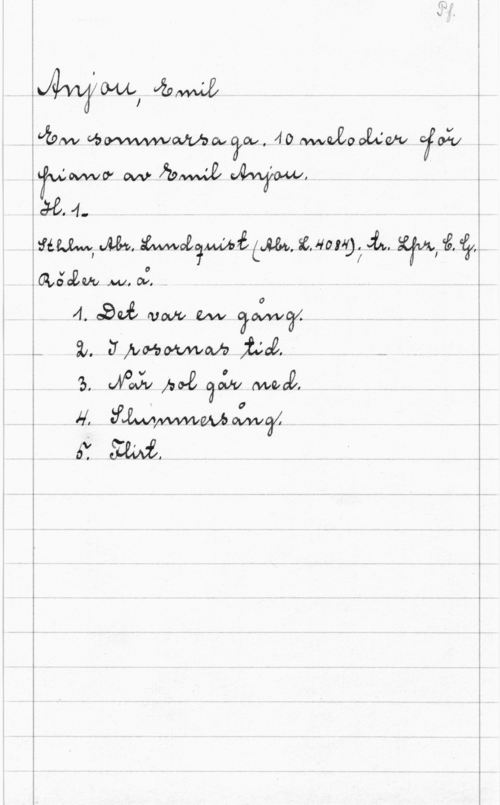 Pf.
Anjou, Emil
En sommarsaga. 10 melodier för
piano av Emil Anjou.
H. 1.
Sthlm, Abr. Lundquist (Abr. L. 4084); tr. Lpz, C. G.
Röder u. å.
1. Det var en gång.
2. I rosornas tid.
3. När sol går ned.
4. Slummersång.
5. Flirt.